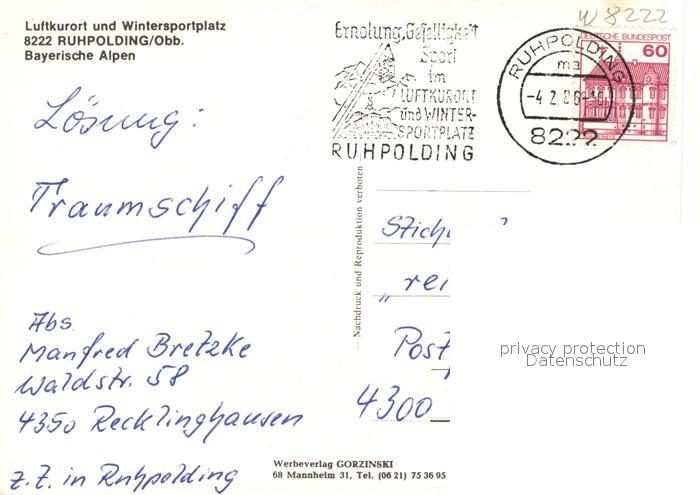 Luftkurort und Wintersportplatz
8222 RUHPOLDING/Obb.
Bayerische Alpen
Lösung:
Traumschiff
Abs.
Manfred Bretzke
Waldstr. 58
4350 Recklinghausen
z.Z. in Ruhpolding
Erholung, Geselligkeit
Sport
im
LUFTKURORT
und WINTER-
SPORTPLATZ
RUHPOLDING
RUHPOLDING
ma
-4.2.86-10
8222
W 8222
DEUTSCHE BUNDESPOST
60
— Nachdruck und Reproduktion verboten —
Stich
„rei
Post
4300
privacy protection
Datenschutz
Werbeverlag GORZINSKI
68 Mannheim 31, Tel. (06 21) 75 36 95